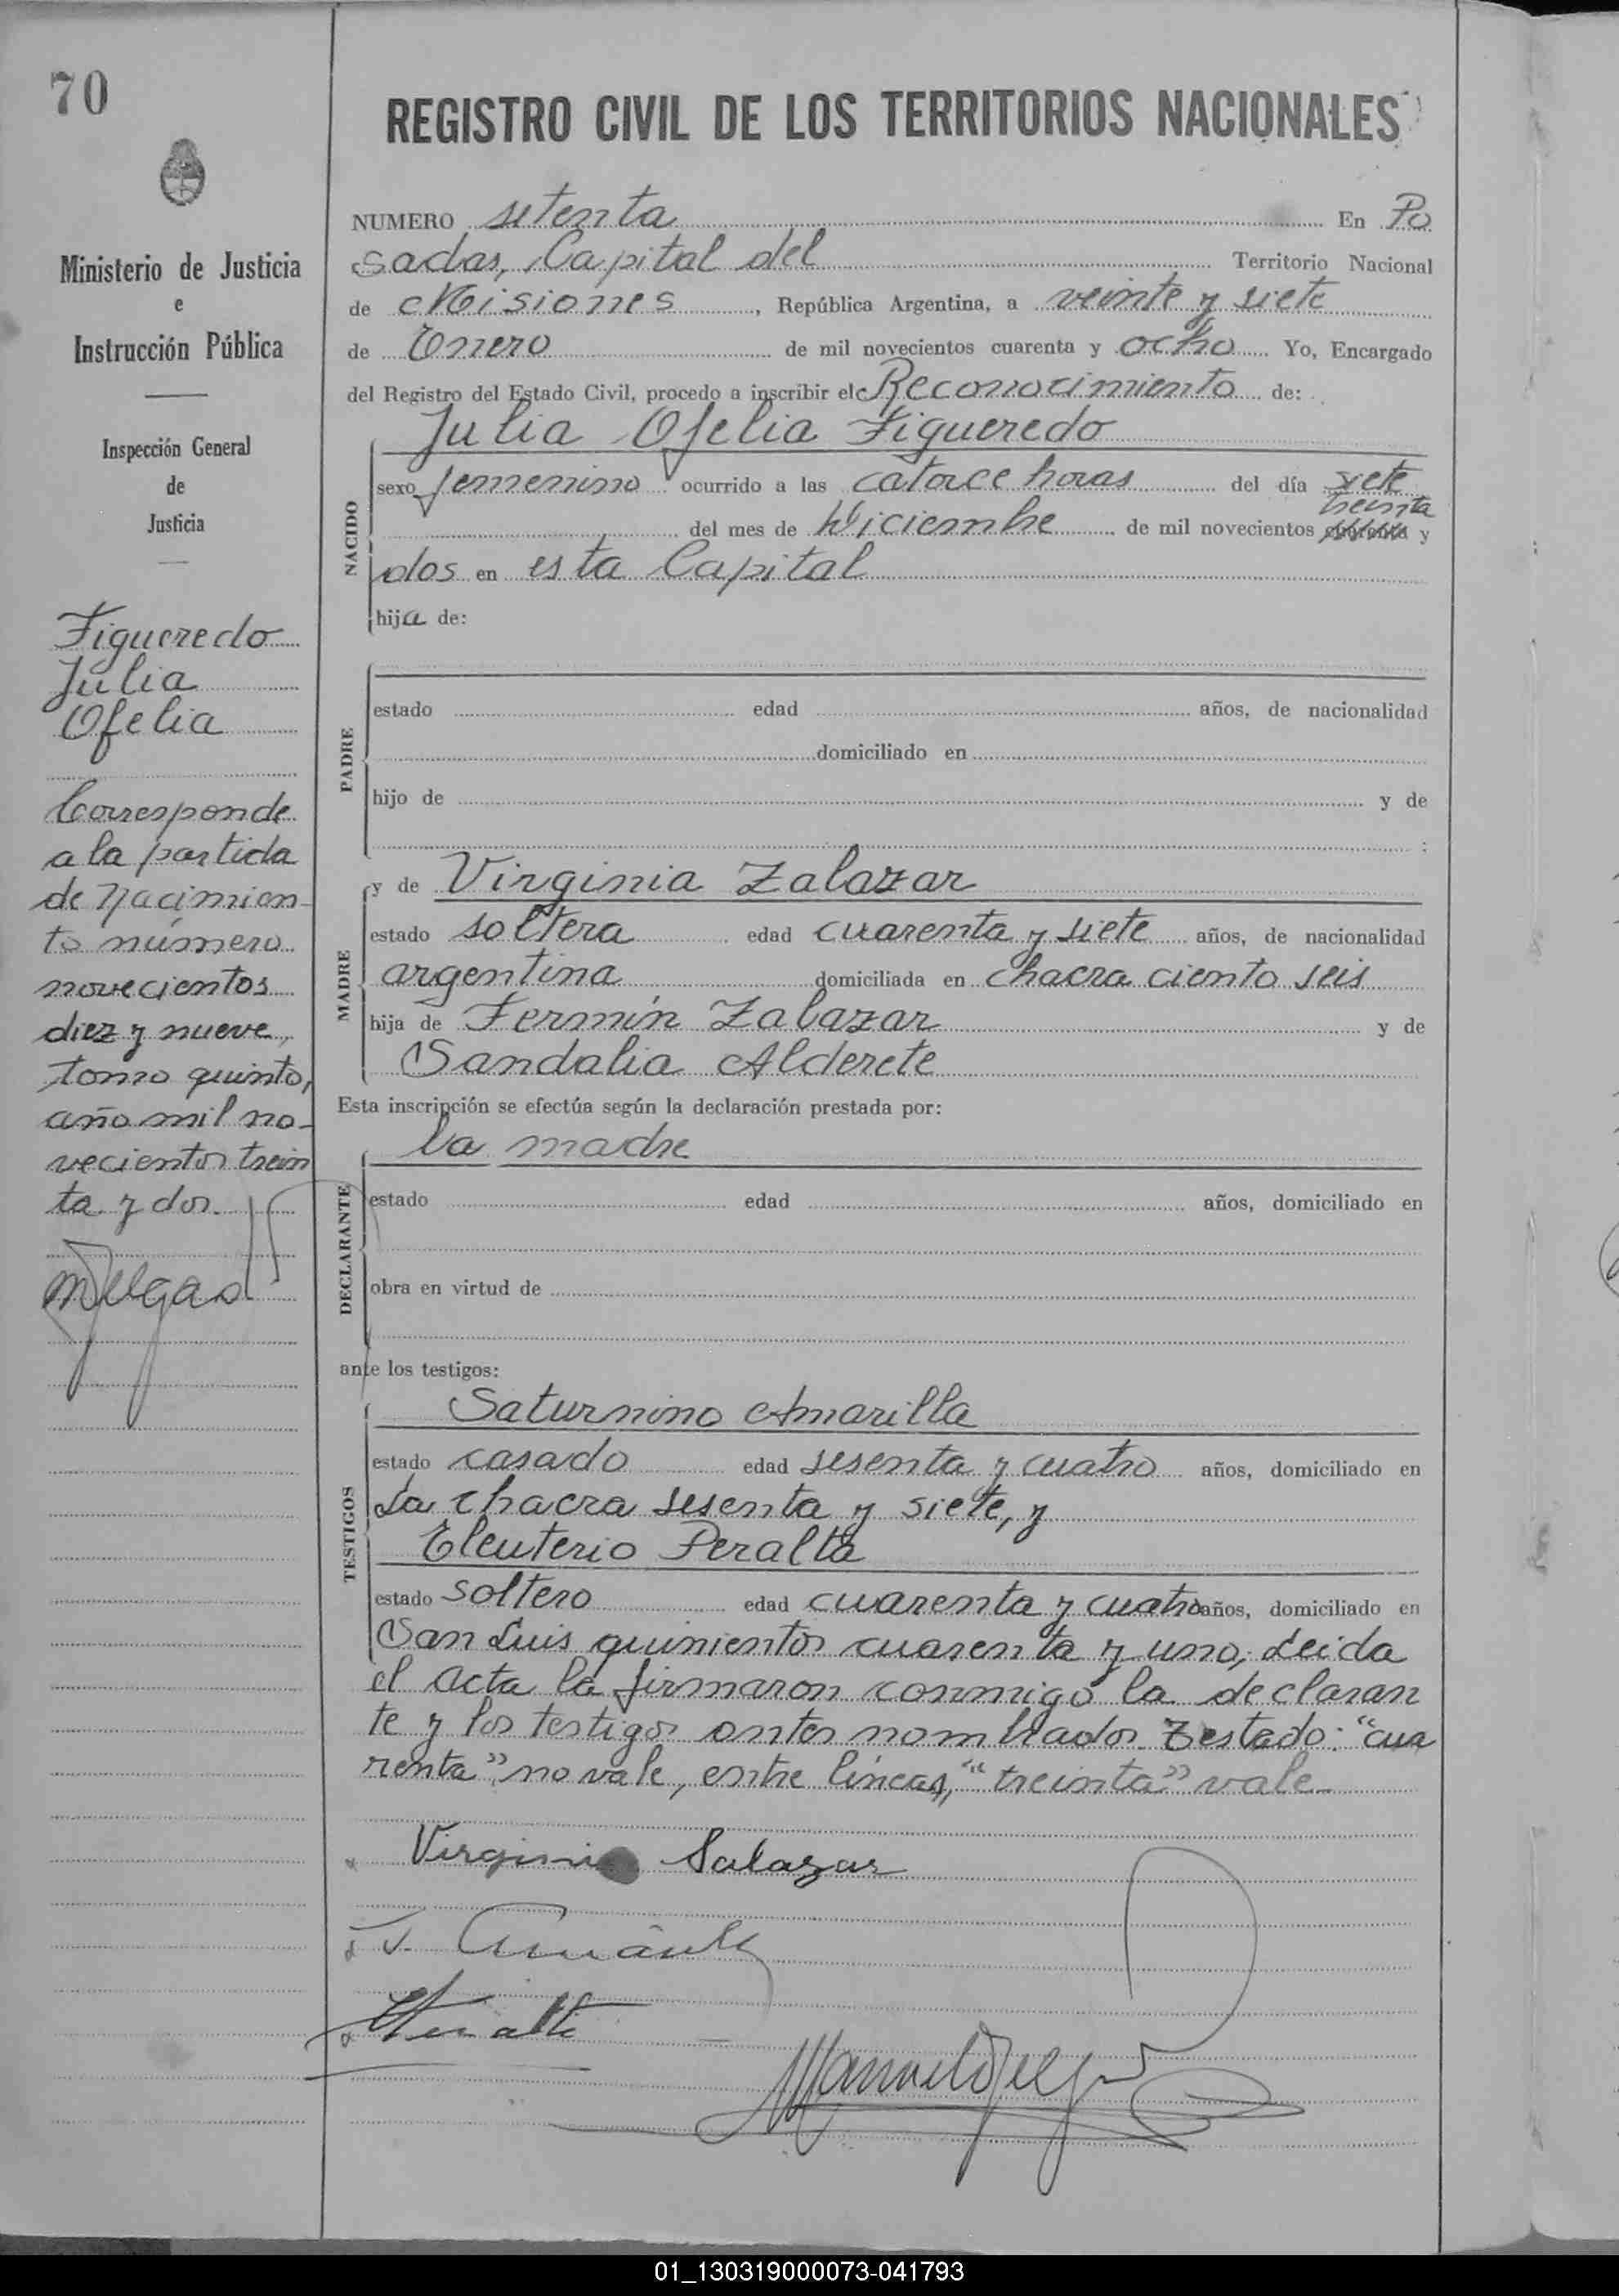 70
Ministerio de Justicia
e
Instrucción Pública
Inspección General
de
Justicia
Figueredo
Julia
Ofelia
Corresponde
a la partida
de Nacimien-
to número
novecientos
diez y nueve,
tomo quinto,
año mil no-
vecientos trein
ta y dos.
REGISTRO CIVIL DE LOS TERRITORIOS NACIONALES
NUMERO setenta En Po
sadas, Capital del Territorio Nacional
de Misiones, República Argentina, a veinte y siete
de Enero de mil novecientos cuarenta y ocho Yo, Encargado
del Registro del Estado Civil, procedo a inscribir el Reconocimiento de:
Julia Ofelia Figueredo
NACIDO
sexo femenino ocurrido a las catorce horas del día siete
treinta
del mes de Diciembre de mil novecientos cuarenta y
dos en esta Capital
hija de:
PADRE
estado edad años, de nacionalidad
domiciliado en
hijo de y de
:
y de Virginia Zalazar
MADRE
estado soltera edad cuarenta y siete años, de nacionalidad
argentina domiciliada en chacra ciento seis
hija de Fermín Zalazar y de
Sandalia Alderete
Esta inscripción se efectúa según la declaración prestada por:
la madre
DECLARANTE
estado edad años, domiciliado en
obra en virtud de
ante los testigos:
Saturnino Amarilla
TESTIGOS
estado casado edad sesenta y cuatro años, domiciliado en
La chacra sesenta y siete, y
Eleuterio Peralta
estado soltero edad cuarenta y cuatro años, domiciliado en
San Luis quinientos cuarenta y uno; Leida
el acta la firmaron conmigo la declaran
te y los testigos antes nombrados. Testado: "cua
renta" no vale, entre líneas, "treinta" vale
Virginia Salazar
01_130319000073-041793